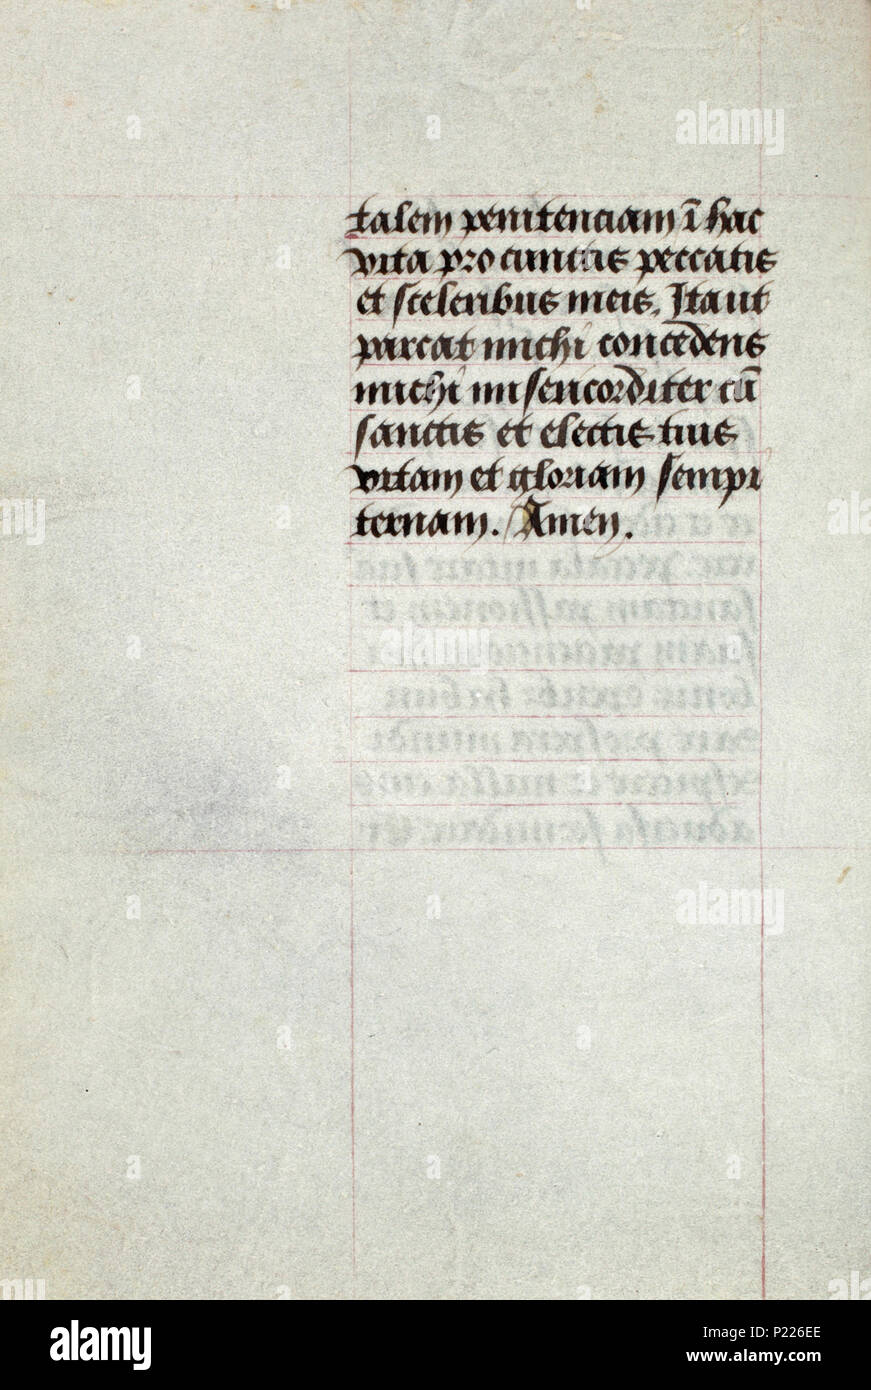 talem penitenciam ī hac
vita pro cunctis peccatis
et sceleribus meis. Ita ut
parcat michi concedens
michi misericorditer cū
sanctis et electis tuis
vitam et gloriam sempi
ternam. Amen.
alamy
alamy
alamy
alamy
alamy
Image ID: P226EE
www.alamy.com